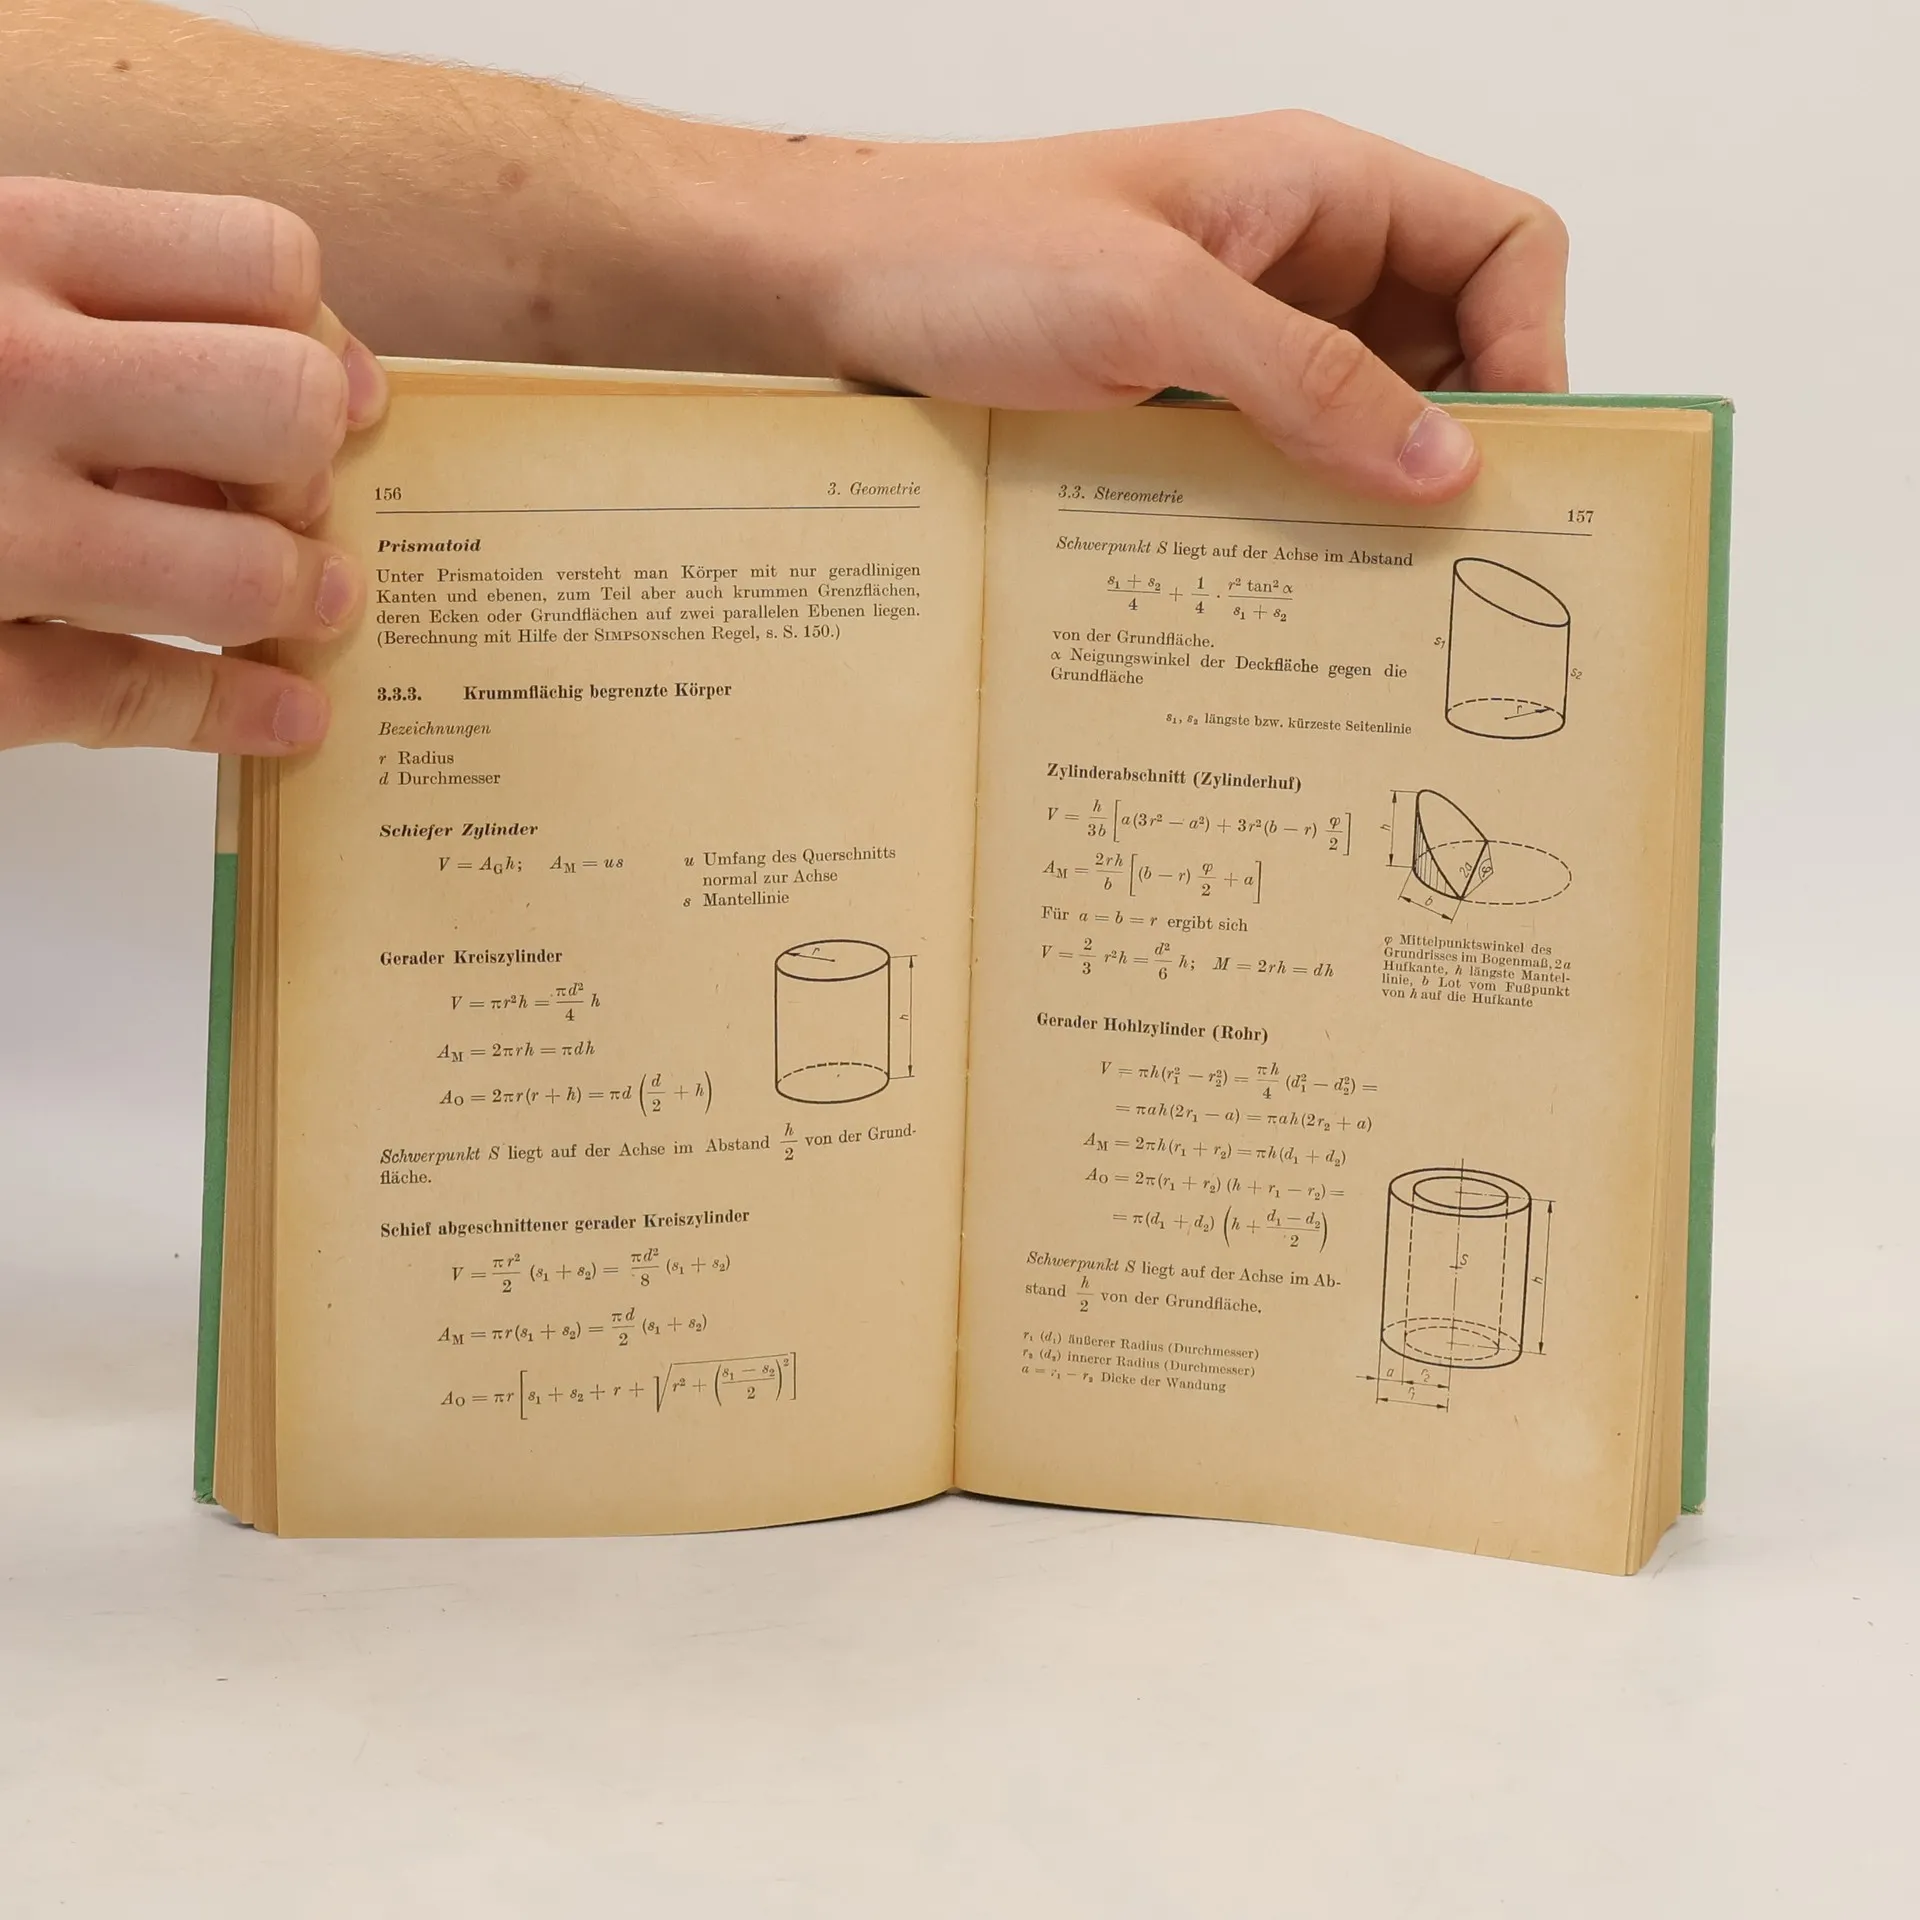 156
3. Geometrie
Prismatoid
Unter Prismatoiden versteht man Körper mit nur geradlinigen
Kanten und ebenen, zum Teil aber auch krummen Grenzflächen,
deren Ecken oder Grundflächen auf zwei parallelen Ebenen liegen.
(Berechnung mit Hilfe der SIMPSONschen Regel, s. S. 150.)
3.3.3. Krummflächig begrenzte Körper
Bezeichnungen
r Radius
d Durchmesser
Schiefer Zylinder
V = A_G h; A_M = us
u Umfang des Querschnitts
normal zur Achse
s Mantellinie
Gerader Kreiszylinder
V = πr²h = πd²/4 h
A_M = 2πrh = πdh
A_O = 2πr(r + h) = πd (d/2 + h)
r
h
Schwerpunkt S liegt auf der Achse im Abstand h/2 von der Grund-
fläche.
Schief abgeschnittener gerader Kreiszylinder
V = πr²/2 (s₁ + s₂) = πd²/8 (s₁ + s₂)
A_M = πr(s₁ + s₂) = πd/2 (s₁ + s₂)
A_O = πr [s₁ + s₂ + r + √(r² + ((s₁ − s₂)/2)²)]
3.3. Stereometrie
157
Schwerpunkt S liegt auf der Achse im Abstand
(s₁ + s₂)/4 + 1/4 · (r² tan² α)/(s₁ + s₂)
von der Grundfläche.
α Neigungswinkel der Deckfläche gegen die
Grundfläche
s₁, s₂ längste bzw. kürzeste Seitenlinie
s₁
s₂
r
Zylinderabschnitt (Zylinderhuf)
V = h/3b [a(3r² − a²) + 3r²(b − r) φ/2]
A_M = 2rh/b [(b − r) φ/2 + a]
Für a = b = r ergibt sich
V = 2/3 r²h = d²/6 h; M = 2rh = dh
h
2a
φ
b
φ Mittelpunktswinkel des
Grundrisses im Bogenmaß, 2a
Hufkante, h längste Mantel-
linie, b Lot vom Fußpunkt
von h auf die Hufkante
Gerader Hohlzylinder (Rohr)
V = πh(r₁² − r₂²) = πh/4 (d₁² − d₂²) =
= πah(2r₁ − a) = πah(2r₂ + a)
A_M = 2πh(r₁ + r₂) = πh(d₁ + d₂)
A_O = 2π(r₁ + r₂) (h + r₁ − r₂) =
= π(d₁ + d₂) (h + (d₁ − d₂)/2)
Schwerpunkt S liegt auf der Achse im Ab-
stand h/2 von der Grundfläche.
r₁ (d₁) äußerer Radius (Durchmesser)
r₂ (d₂) innerer Radius (Durchmesser)
a = r₁ − r₂ Dicke der Wandung
S
h
a
r₂
r₁